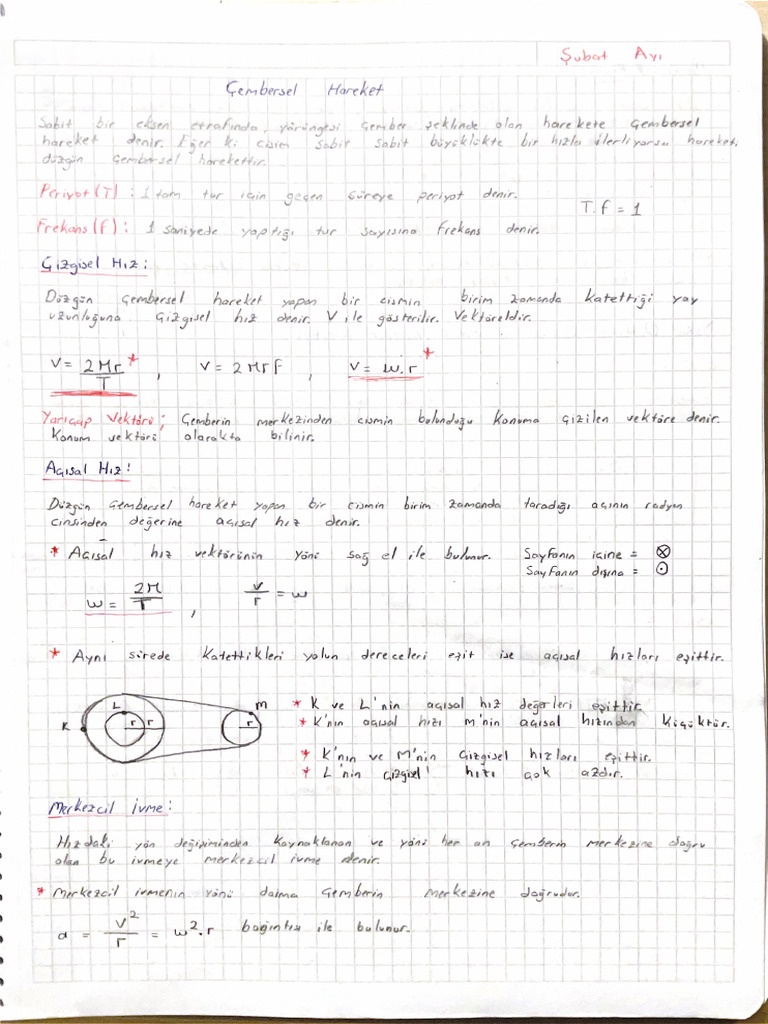 Şubat Ayı
Çembersel Hareket
Sabit bir eksen etrafında, yörüngesi çember şeklinde olan harekete çembersel
hareket denir. Eğer ki cisim sabit sabit büyüklükte bir hızla ilerliyorsa hareket;
düzgün çembersel harekettir.
Periyot(T) : 1 tam tur için geçen süreye periyot denir.
T.f = 1
Frekans(f) : 1 saniyede yaptığı tur sayısına frekans denir.
Çizgisel Hız:
Düzgün çembersel hareket yapan bir cismin birim zamanda katettiği yay
uzunluğuna çizgisel hız denir. V ile gösterilir. Vektöreldir.
V = 2πr/T * , V = 2πrf , V = w.r *
Yarıçap Vektörü; Çemberin merkezinden cismin bulunduğu konuma çizilen vektöre denir.
Konum vektörü olarakta bilinir.
Açısal Hız:
Düzgün çembersel hareket yapan bir cismin birim zamanda taradığı açının radyan
cinsinden değerine açısal hız denir.
* Açısal hız vektörünün yönü sağ el ile bulunur. Sayfanın içine = ⊗
Sayfanın dışına = ⊙
w = 2π/T , v/r = w
* Aynı sürede katettikleri yolun dereceleri eşit ise açısal hızları eşittir.
K L r r r M
* K ve L'nin açısal hız değerleri eşittir.
* K'nın açısal hızı M'nin açısal hızından küçüktür.
* K'nın ve M'nin çizgisel hızları eşittir.
* L'nin çizgisel hızı çok azdır.
Merkezcil İvme:
Hızdaki yön değişiminden kaynaklanan ve yönü her an çemberin merkezine doğru
olan bu ivmeye merkezcil ivme denir.
* Merkezcil ivmenin yönü daima çemberin merkezine doğrudur.
a = v²/r = w².r bağıntısı ile bulunur.